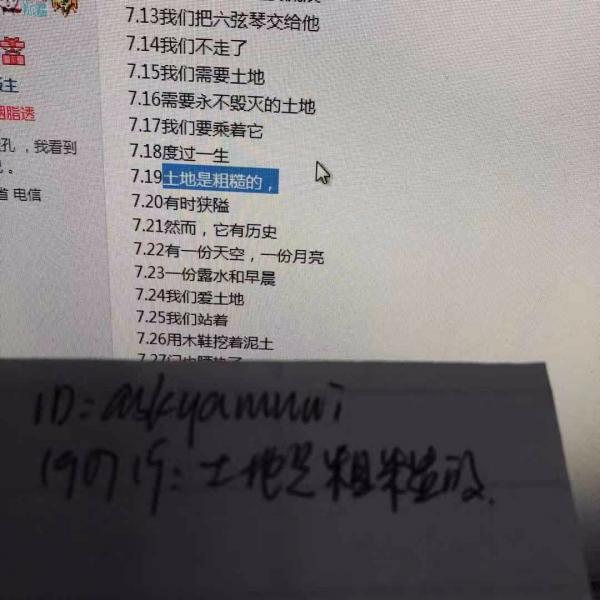 7.13我们把六弦琴交给他
7.14我们不走了
7.15我们需要土地
7.16需要永不毁灭的土地
7.17我们要乘着它
7.18度过一生
7.19土地是粗糙的，
7.20有时狭隘
7.21然而，它有历史
7.22有一份天空，一份月亮
7.23一份露水和早晨
7.24我们爱土地
7.25我们站着
7.26用木鞋挖着泥土
主
胭脂透
孔，我看到
省 电信
ID: askyamuwi
190719: 土地是粗糙的.